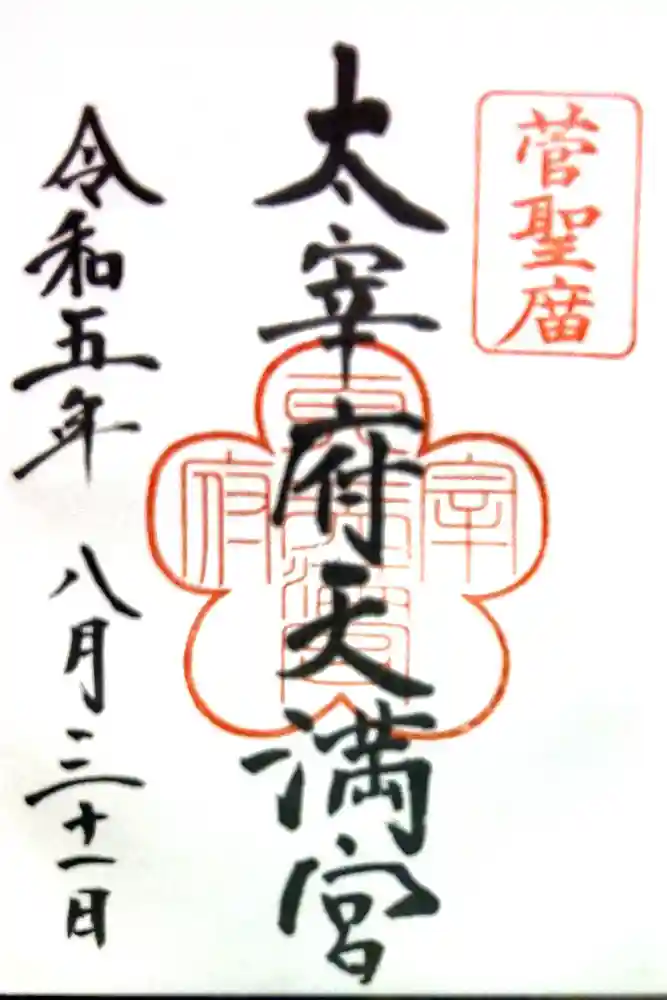 菅聖庿
太宰府天満宮
令和五年 八月三十一日